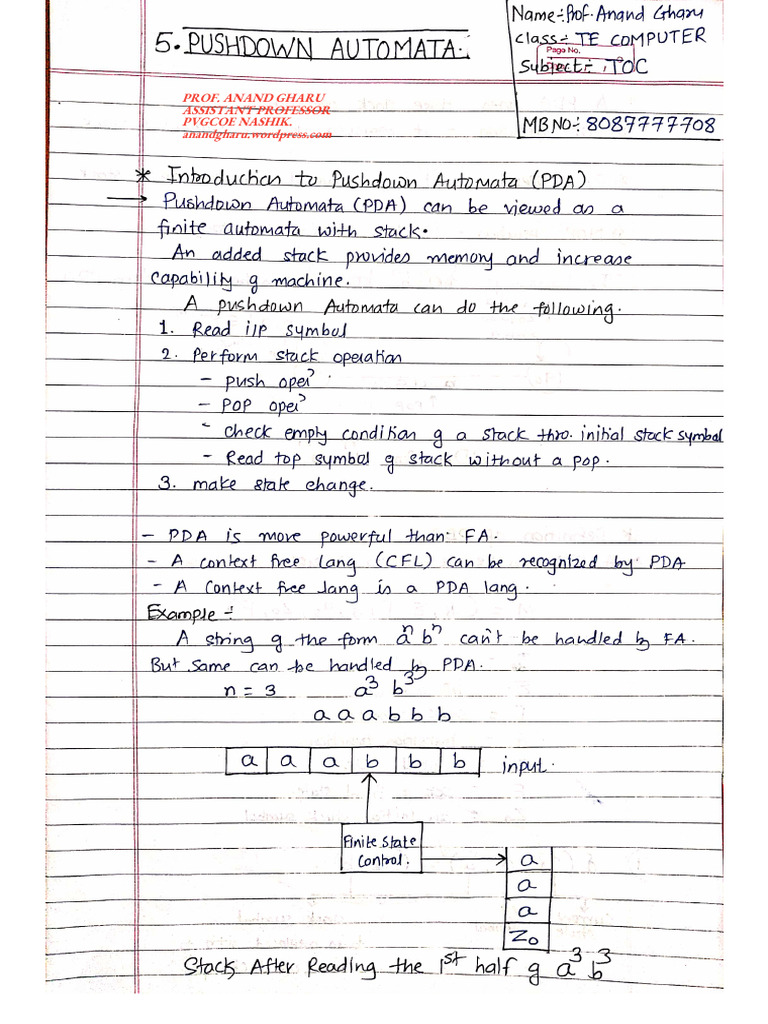 Name:- Prof. Anand Gharu
Class:- TE COMPUTER
Page No.
Subject:- TOC
MB NO:- 8087777708
5. PUSHDOWN AUTOMATA.
PROF. ANAND GHARU
ASSISTANT PROFESSOR
PVGCOE NASHIK.
anandgharu.wordpress.com
* Introduction to Pushdown Automata (PDA)
→ Pushdown Automata (PDA) can be viewed as a
finite automata with stack.
An added stack provides memory and increase
capability of machine.
A pushdown Automata can do the following.
1. Read i/p symbol
2. Perform stack operation
- push opeṙ
- POP opeṙ
- check empty condition of a stack thro. initial stack symbol
- Read top symbol of stack without a pop.
3. make state change.
- PDA is more powerful than FA.
- A context free lang (CFL) can be recognized by PDA
- A Context free lang is a PDA lang.
Example :-
A string of the form aⁿ bⁿ can't be handled by FA.
But same can be handled by PDA.
n = 3 a³ b³
a a a b b b
a a a b b b input.
Finite State
Control.
a
a
a
Z₀
Stack After Reading the 1st half of a³ b³